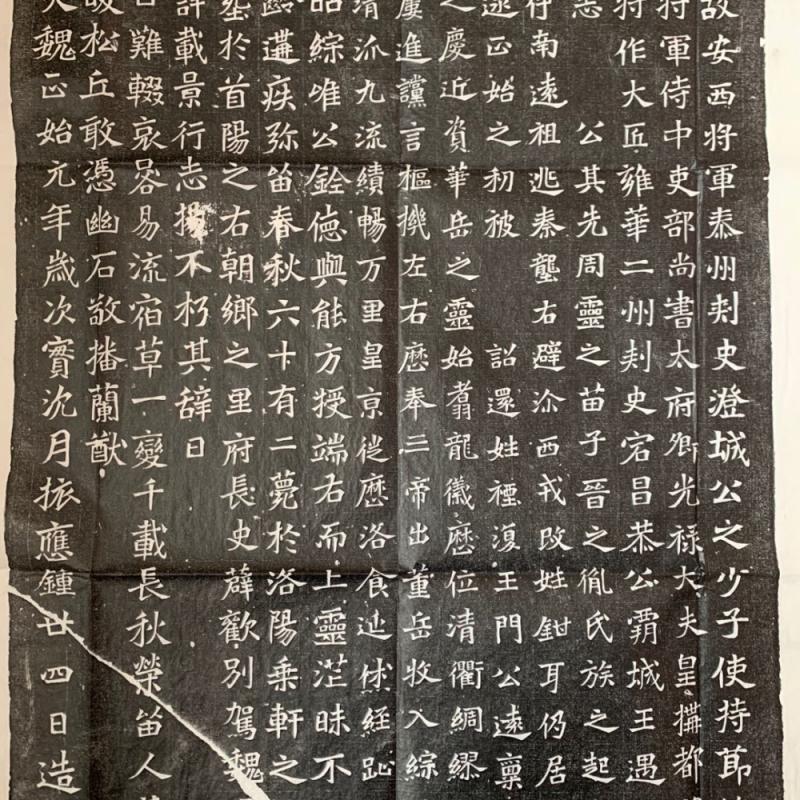 故安西将軍泰州刾史澄城公之少子使持節
将軍侍中吏部尚書太府卿光禄大夫皇構都
将作大匠雍華二州刾史宕昌恭公霸城王遇
志　公其先周靈之苗子晉之胤氏族之起
南遠祖逃秦壟右避西戎改姓鉗耳仍居
遂正始之初被　詔還姓禋復王門公遠稟
之慶近資華岳之靈始翥龍儀歷位清衢綢繆
屢進讜言樞機左右歷奉二帝出董岳牧入綜
清九流績暢万里皇京徙歷洛食経趾
昭綜唯公銓德與能方授端右而上靈茫昧不
齡遘疾弥留春秋六十有二薨於洛陽乘軒之
塟於首陽之右朝鄉之里府長史薛歡别駕魏
詳載景行志不朽其辞曰
難輟哀易流宿草一變千載長秋榮留人
峻松丘敢憑幽石敬播蘭猷
大魏正始元年歲次實沈月振應鍾廿四日造